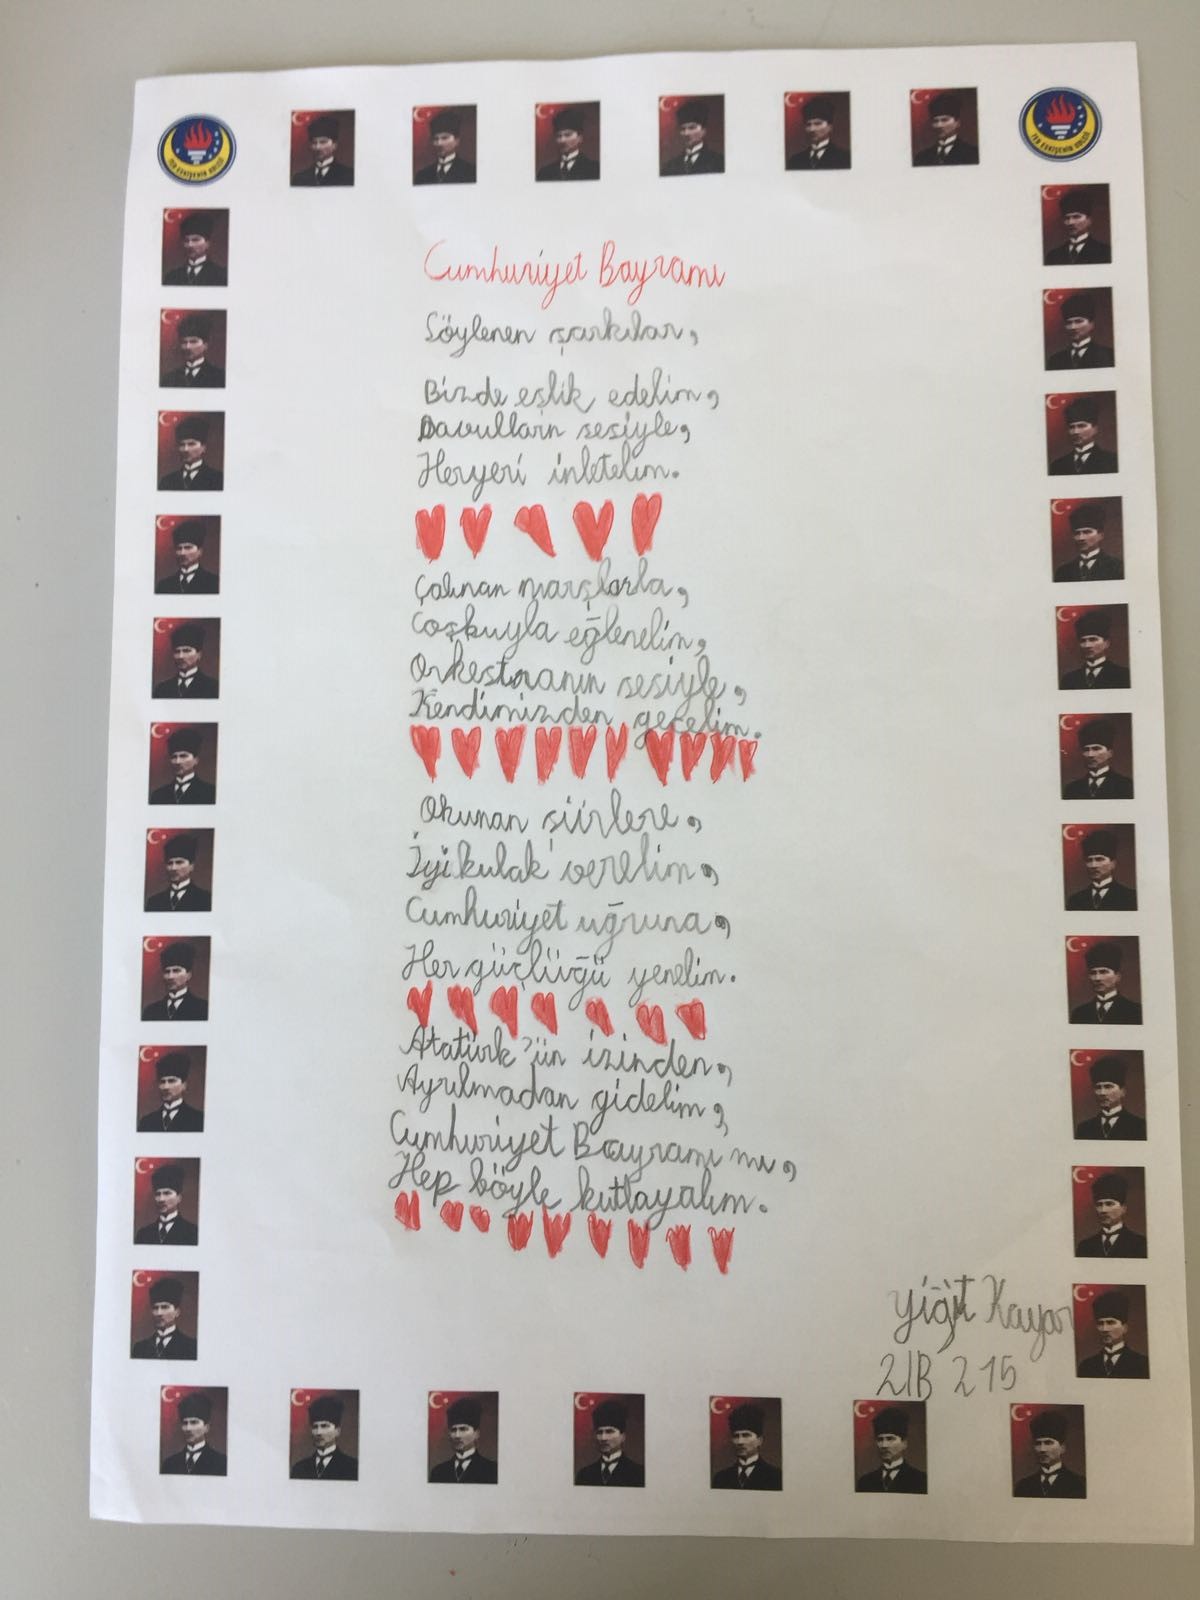 TED ESKİŞEHİR KOLEJİ
TED ESKİŞEHİR KOLEJİ
Cumhuriyet Bayramı
Söylenen şarkılar,
Bizde eşlik edelim,
Davulların sesiyle,
Heryeri inletelim.
Çalınan marşlarla,
Coşkuyla eğlenelim,
Orkestranın sesiyle,
Kendimizden geçelim.
Okunan şiirlere,
İyi kulak verelim,
Cumhuriyet uğruna,
Her güçlüğü yenelim.
Atatürk'ün izinden,
Ayrılmadan gidelim,
Cumhuriyet Bayramı'mı,
Hep böyle kutlayalım.
Yiğit Kayar
2/B 215